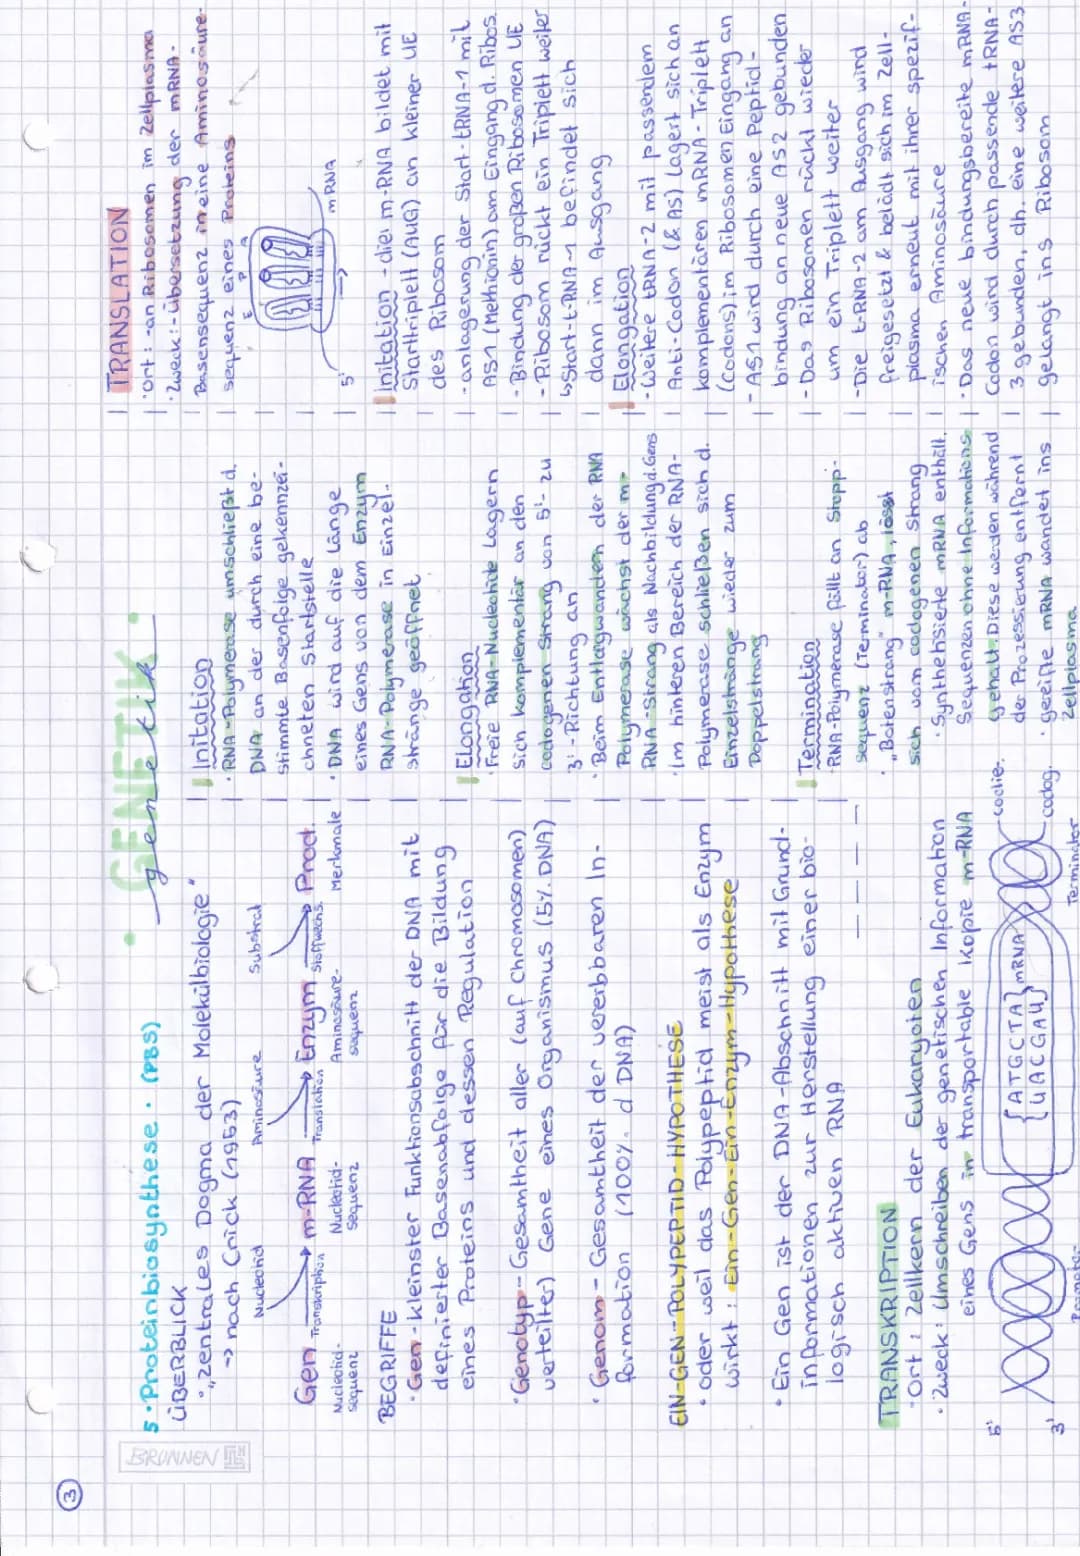 3
BRUNNEN
GENETIK
genetik
5. Proteinbiosynthese. (PBS)
ÜBERBLICK
"Zentrales Dogma der Molekülbiologie"
→ nach Crick (1953)
Nucleotid Aminosäure Substrat
Gen → m-RNA → Enzym → Prod.
Transkription Translation Stoffwechs.
Nucleotid- Nucleotid- Aminosäure- Merkmale
sequenz sequenz sequenz
BEGRIFFE
• Gen - kleinster Funktionsabschnitt der DNA mit
definierter Basenabfolge für die Bildung
eines Proteins und dessen Regulation
• Genotyp - Gesamtheit aller (auf Chromosomen)
verteilter) Gene eines Organismus (5% DNA)
• Genom - Gesamtheit der vererbbaren In-
formation (100% d DNA)
EIN-GEN-POLYPEPTID-HYPOTHESE
• oder weil das Polypeptid meist als Enzym
wirkt: Ein-Gen-Ein-Enzym-Hypothese
• Ein Gen ist der DNA-Abschnitt mit Grund-
informationen zur Herstellung einer bio-
logisch aktiven RNA
TRANSKRIPTION
• Ort: Zellkern der Eukaryoten
• Zweck: Umschreiben der genetischen Information
eines Gens in transportable Kopie m-RNA
5'
3'
ATGCTA
UACGAU
mRNA
codie.
codog.
Terminator
Initation
• RNA-Polymerase umschließt d.
DNA an der durch eine be-
stimmte Basenfolge gekennzei-
chneten Startstelle
• DNA wird auf die Länge
eines Gens von dem Enzym
RNA-Polymerase in Einzel-
stränge geöffnet
Elongation
• Freie RNA-Nucleotide lagern
sich komplementär an den
codogenen Strang von 5'- zu
3'-Richtung an
• Beim Entlangwandern der RNA
Polymerase wächst der m-
RNA-Strang als Nachbildung d. Gens
• Im hinteren Bereich der RNA-
Polymerase schließen sich d.
Einzelstränge wieder zum
Doppelstrang
Termination
• RNA-Polymerase fällt an Stopp-
sequenz (Terminator) ab
• "Botenstrang" m-RNA, lässt
sich vom codogenen Strang
• Synthethisierte mRNA enthält.
Sequenzen ohne Informations-
gehalt. Diese werden während
der Prozessierung entfernt
• gereifte mRNA wandet ins
Zellplasma
TRANSLATION
• Ort: - an Ribosomen im Zellplasma
• Zweck: - Übersetzung der mRNA-
Basensequenz in eine Aminosäure-
sequenz eines Proteins
E P A
5'
mRNA
Initation - die m-RNA bildet mit
Starttriplett (AUG) an kleiner UE
des Ribosom
- anlagerung der Start-tRNA-1 mit
AS1 (Methionin) am Eingang d. Ribos.
- Bindung der großen Ribosomen UE
- Ribosom rückt ein Triplett weiter
↳ Start-t-RNA-1 befindet sich
dann im Ausgang
Elongation
- Weitere tRNA-2 mit passendem
Anti-Codon (& AS) lagert sich an
komplementären mRNA-Triplett
(Codons), im Ribosomen Eingang an
- AS1 wird durch eine Peptid-
bindung an neue AS2 gebunden
- Das Ribosomen rückt wieder
um ein Triplett weiter
- Die t-RNA-2 am Ausgang wird
freigesetzt & belädt sich im Zell-
plasma erneut mit ihrer spezif-
ischen Aminosäure
• Das neue bindungsbereite mRNA-
Codon wird durch passende tRNA-
3 gebunden, dh. eine weitere AS3
gelangt ins Ribosom